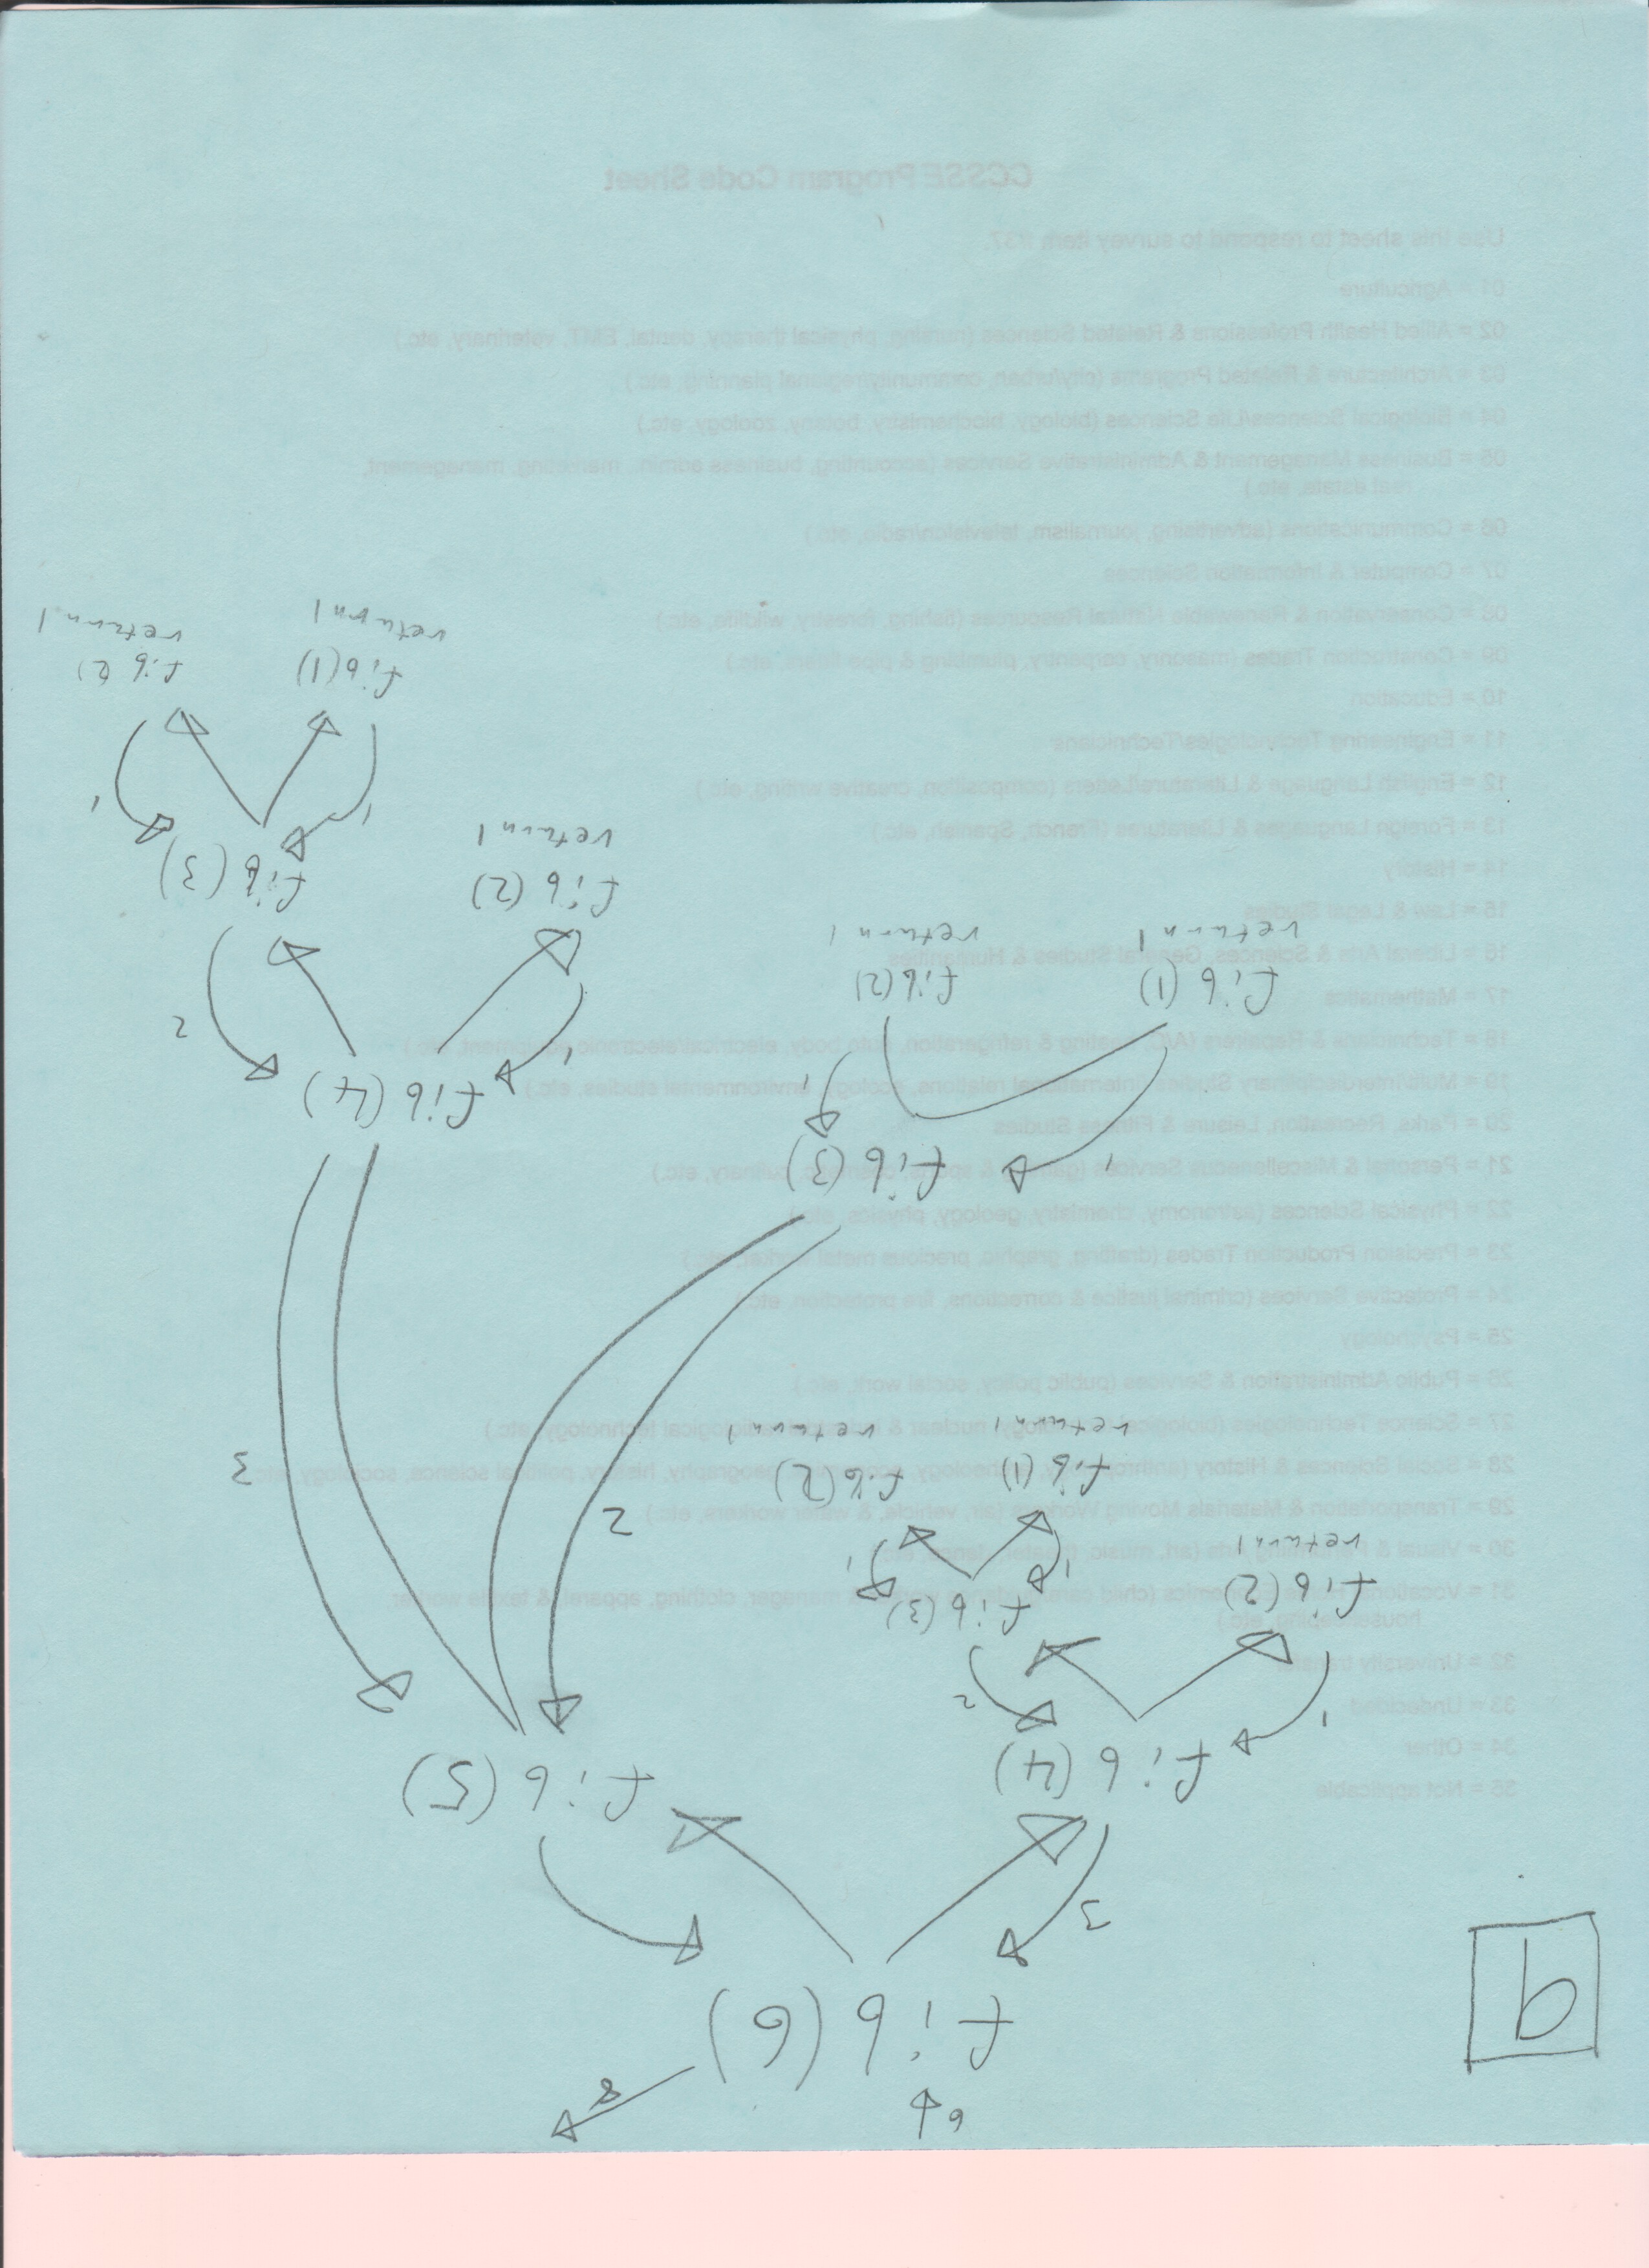 6
8
9
fib(6)
3
fib(4)
fib(5)
1
2
fib(2)
return 1
fib(3)
1
1
fib(1)
return 1
fib(2)
return 1
2
3
fib(3)
1
1
fib(1)
return 1
fib(2)
return 1
fib(4)
1
2
fib(2)
return 1
fib(3)
1
1
fib(1)
return 1
fib(2)
return 1
CCSSE Program Code Sheet
Use this sheet to respond to survey item #37.
01 = Agriculture
02 = Allied Health Professions & Related Sciences (nursing, physical therapy, dental, EMT, veterinary, etc.)
03 = Architecture & Related Programs (city/urban, community/regional planning, etc.)
04 = Biological Sciences/Life Sciences (biology, biochemistry, botany, zoology, etc.)
05 = Business Management & Administrative Services (accounting, business admin., marketing, management,
real estate, etc.)
06 = Communications (advertising, journalism, television/radio, etc.)
07 = Computer & Information Sciences
08 = Conservation & Renewable Natural Resources (fishing, forestry, wildlife, etc.)
09 = Construction Trades (masonry, carpentry, plumbing & pipe fitters, etc.)
10 = Education
11 = Engineering Technologies/Technicians
12 = English Language & Literature/Letters (composition, creative writing, etc.)
13 = Foreign Languages & Literatures (French, Spanish, etc.)
14 = History
15 = Law & Legal Studies
16 = Liberal Arts & Sciences, General Studies & Humanities
17 = Mathematics
18 = Technicians & Repairers (A/C, heating & refrigeration, auto body, electrical/electronic equipment, etc.)
19 = Multi/Interdisciplinary Studies (international relations, ecology, environmental studies, etc.)
20 = Parks, Recreation, Leisure & Fitness Studies
21 = Personal & Miscellaneous Services (gaming & sports, cosmetic, culinary, etc.)
22 = Physical Sciences (astronomy, chemistry, geology, physics, etc.)
23 = Precision Production Trades (drafting, graphic, precious metal worker, etc.)
24 = Protective Services (criminal justice & corrections, fire protection, etc.)
25 = Psychology
26 = Public Administration & Services (public policy, social work, etc.)
27 = Science Technologies (biological technology, nuclear & radiological technology, etc.)
28 = Social Sciences & History (anthropology, archeology, economics, geography, history, political science, sociology, etc.)
29 = Transportation & Materials Moving Workers (air, vehicle, & water workers, etc.)
30 = Visual & Performing Arts (art, music, theater, dance, etc.)
31 = Vocational Home Economics (child care manager, clothing, apparel, & textile worker,
housekeeping, etc.)
32 = University transfer
33 = Undecided
34 = Other
35 = Not applicable